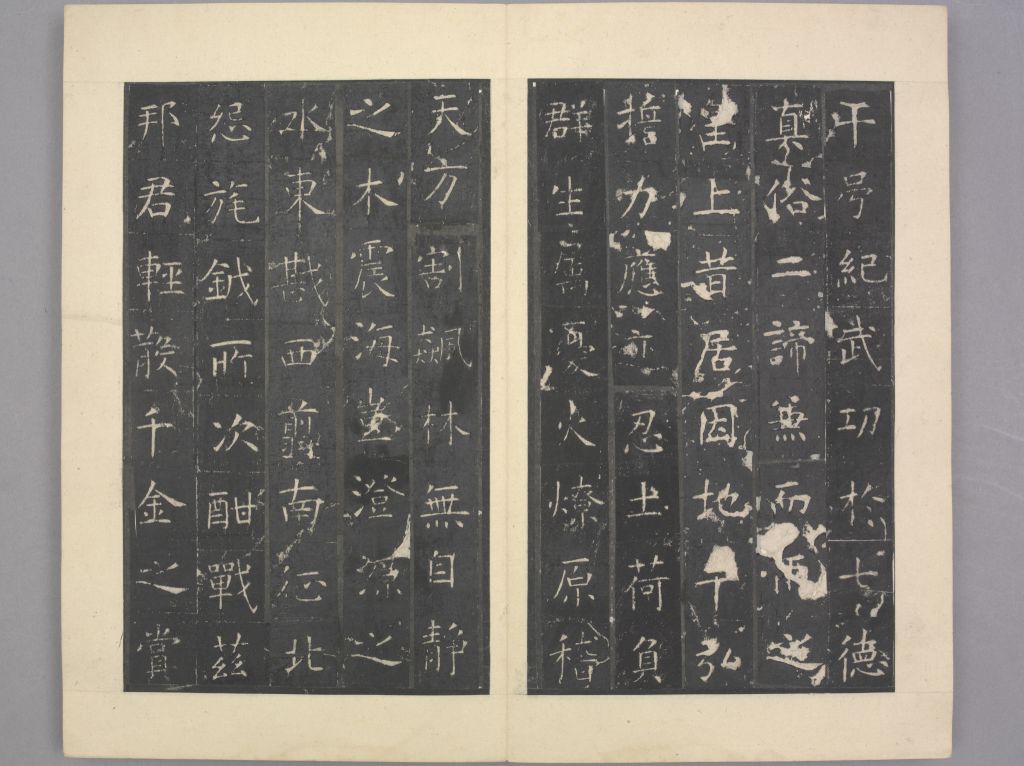 干紀武功於七德
真俗二諦兼而
上昔居因地弘
誓力應忍土荷負
群生屬憂火燎原稽
天方割飆林無自静
之木震海豈澄源之
水東戡西翦南征北
怨旄鉞所次酣戰茲
邦君輕散千金之賞